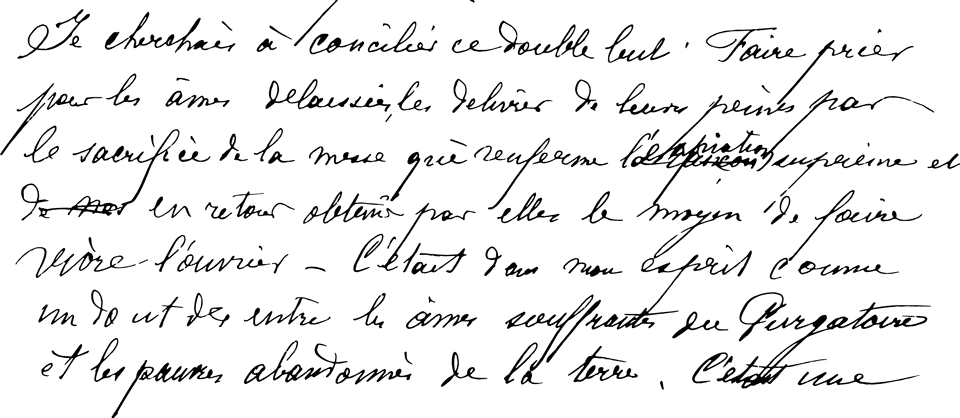 Je cherchais à concilier ce double but. Faire prier
pour les âmes delaissées, les delivrer de leurs peines par
le sacrifice de la messe qui renferme l'expiation suprême et
de nos en retour obtenir par elles le moyen de faire
vivre l'ouvrier - C'était dans mon esprit comme
un do ut des entre les âmes souffrantes du Purgatoire
et les pauvres abandonnés de la terre. C'était une